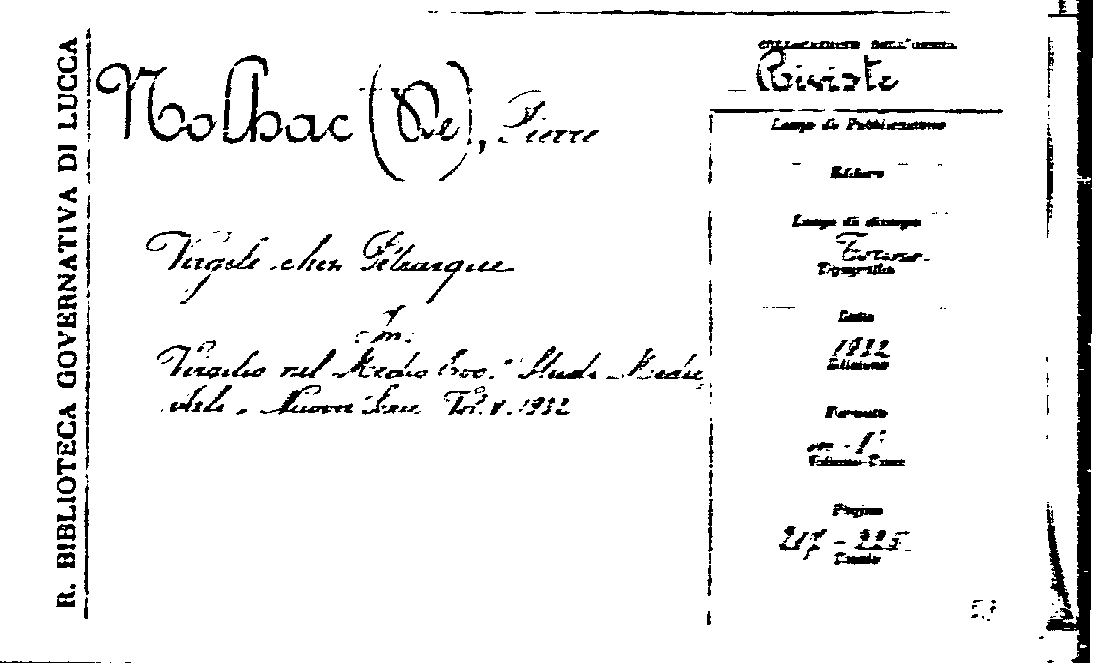 R. BIBLIOTECA GOVERNATIVA DI LUCCA
Nolhac (De), Pierre
Virgile chez Pétrarque
In:
Virgilio nel Medio Evo." Studi Medie,
vali, Nuova Serie Vol. V. 1932
COLLOCAZIONE DELL'OPERA
Riviste
Luogo di Pubblicazione
Editore
Luogo di stampa
Torino
Tipografia
Data
1932
Edizione
Formato
in-8°
Pagine
217-225